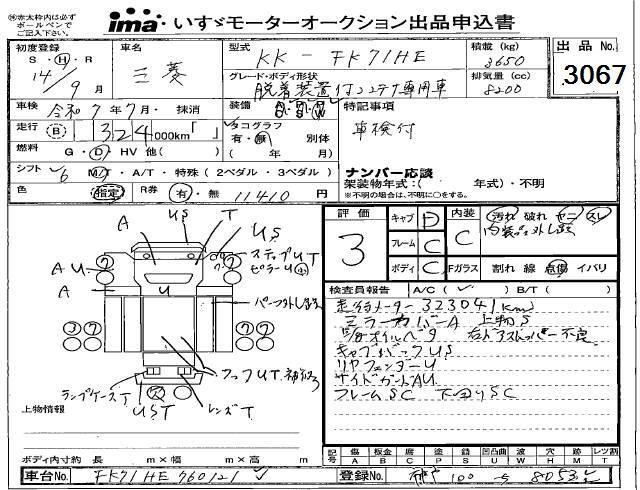 ※赤太枠内は必ずボールペンでご記入下さい。
ima いすゞモーターオークション出品申込書
初度登録 S・H・R 14年 9月
車名 三菱
型式 KK-FK71HE
積載(kg) 3650
出品No. 3067
グレード・ボディ形状 脱着装置付コンテナ専用車
排気量(cc) 8200
車検 令和7年7月・抹消
装備
特記事項
車検付
走行 B 324,000km「 」
タコグラフ 有・無 別体
燃料 G・D・HV 他( )
( 年 月)
ナンバー応談
シフト 6 M/T・A/T・特殊(2ペダル・3ペダル)
架装物年式:( 年式)・不明
※不明の場合は、不明に○をする。
色 指定 R券 有・無 11410円
評価 3
キャブ D
フレーム C
ボディ C
内装 C
汚れ 破れ ヤニ スレ
Fガラス 割れ 線 点傷 イバリ
検査員報告 A/C( ) P/W( ) P/S( )
走行メーター323041km
ミラーカバーA 上物S
キャブバックUS
リヤフェンダーU
サイドガードAU
フレームSC 下回りSC
A US T
US
ステップUT
ピラーU
AU
A
U
フックUT 補給ろ
ランプケースT
UST
レンズT
上物情報
ボディ内寸約 長 m×幅 m×高 m
記号 傷 A 板金 B 腐 C 塗 P 錆 S 凹凸曲 U 波 W 穴 H 跡 M レツ割 T
車台No. FK71HE 760121
登録No. 神戸 100 ち 8053